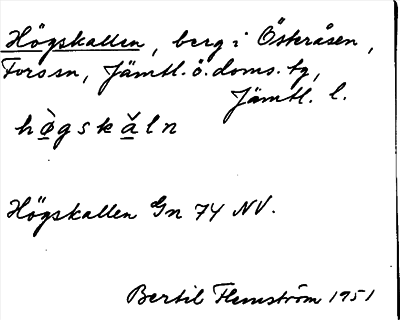 Högskallen, berg i Österåsen,
Forssn, Jämtl. ö. doms. tg,
Jämtl. l.
hø̀gskǎln
Högskallen Gn 74 NV.
Bertil Flemström 1951